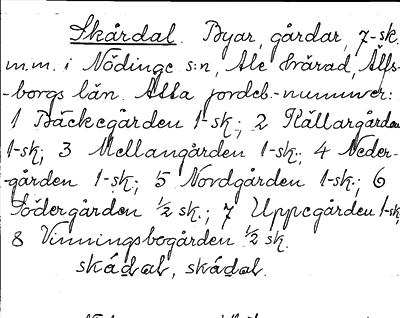 Skårdal. Byar, gårdar, 7-sk.
m.m. i Nödinge s:n, Ale härad, Älfs-
-borgs län. Åtta jordeb.-nummer:
1 Bäckegården 1-sk.; 2 Källargården
1-sk; 3 Mellangården 1-sk; 4 Neder-
-gården 1-sk; 5 Nordgården 1-sk; 6
Södergården ½ sk.; 7 Uppegården 1-sk
8 Vinningsbogården ½ sk.
skådal, skádal.